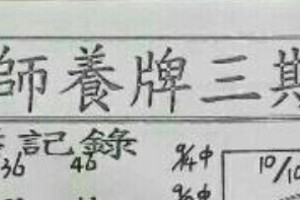 師養牌三期
記錄
36 46 9/4中 10/10